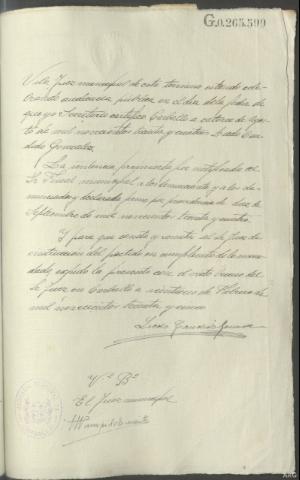 G.0.265,599
Juez municipal de este termino estando cele-
brando audiencia publica en el dia de la fecha de
que yo Secretario certifico Carballo a catorce de Agos-
to de mil novecientos treinta y cuatro
dido Gonzalez
La sentencia fue notificada al
Sr Fiscal municipal a los denunciante y a los de-
nunciados y declarada firme por providencia de diez de
Septiembre de mil novecientos treinta y cuatro.
Y para que conste y remitir al Sr Juez de
instruccion del partido en cumplimiento de lo man-
dado, expido la presente con el visto bueno del
Sr Juez en Carballo a veintiuno de Febrero de
mil novecientos treinta y cinco
Vº Bº
El Juez municipal